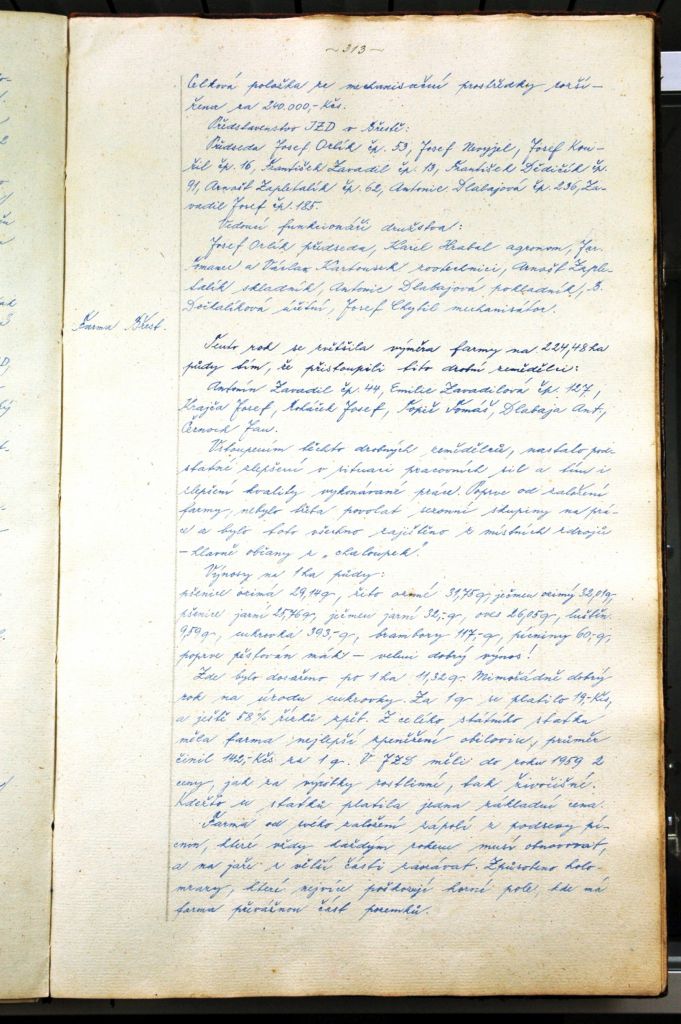 ~ 313 ~
Celková položka ze mechanisační prostředky rozší-
řena za 240.000,- Kčs.
Představenstvo JZD v Břestě:
Předseda Josef Orlík čp. 53, Josef Nevyjel, Josef Kou-
řil čp. 16, František Zavadil čp. 13, František Dědičík čp.
91, Arnošt Zapletalík čp. 62, Antonie Dlabajová čp. 236, Za-
vadil Josef čp. 185.
Vedoucí funkcionáři družstva:
Josef Orlík předseda, Karel Hrabal agronom, Jar.
a Václav Kartousek zootechnici, Arnošt Zaple-
talík skladník, Antonie Dlabajová pokladník, B.
Dočkalíková účetní, Josef Chytil mechanisátor.
Farma Břest.
Tento rok se zvětšila výměra farmy na 224,48 ha
půdy tím, že přistoupili tito drobní zemědělci:
Antonín Zavadil čp. 44, Emilie Zavadilová čp. 127,
Krajča Josef, Josef, Tomáš, Dlabaja Ant.,
Černoch Jan.
Vstoupením těchto drobných zemědělců, nastalo pod-
statné zlepšení v situaci pracovních sil a tím i
zlepšení kvality vykonávané práce. Poprve od založení
farmy, nebylo třeba povolat sezonní skupiny na prá-
ce a bylo toto všechno zajištěno z místních zdrojů
- hlavně občany z „chaloupek".
Výnosy na 1 ha půdy:
pšenice ozimá 29,14 q, žito ozimé 31,75 q, ječmen ozimý 32,01 q,
pšenice jarní 25,76 q, ječmen jarní 32,- q, oves 26,05 q, luštěn.
9,59 q, cukrovka 393,- q, brambory 117,- q, pícniny 60,- q,
poprve pěstován mák - velmi dobrý výnos!
Zde bylo dosaženo po 1 ha 11,32 q. Mimořádně dobrý
rok na úrodu cukrovky. Za 1 q se platilo 19,- Kčs,
a ještě 58 % řízků zpět. Z celého státního statku
měla farma nejlepší zpeněžení obilovin, průměr
činil 142,- Kčs za 1 q. V JZD měli do roku 1959 2
ceny, jak za výrobky rostlinné, tak živočišné.
Kdežto u statků platila jedna základní cena.
Farma od svého založení zápolí z podsevy pí-
cnin, které vždy každým rokem musí obnovovat,
a na jaře z větší části zaorávat. Způsobeno holo-
mrazy, které nejvíce poškozují horní pole, kde má
farma převážnou část pozemků.